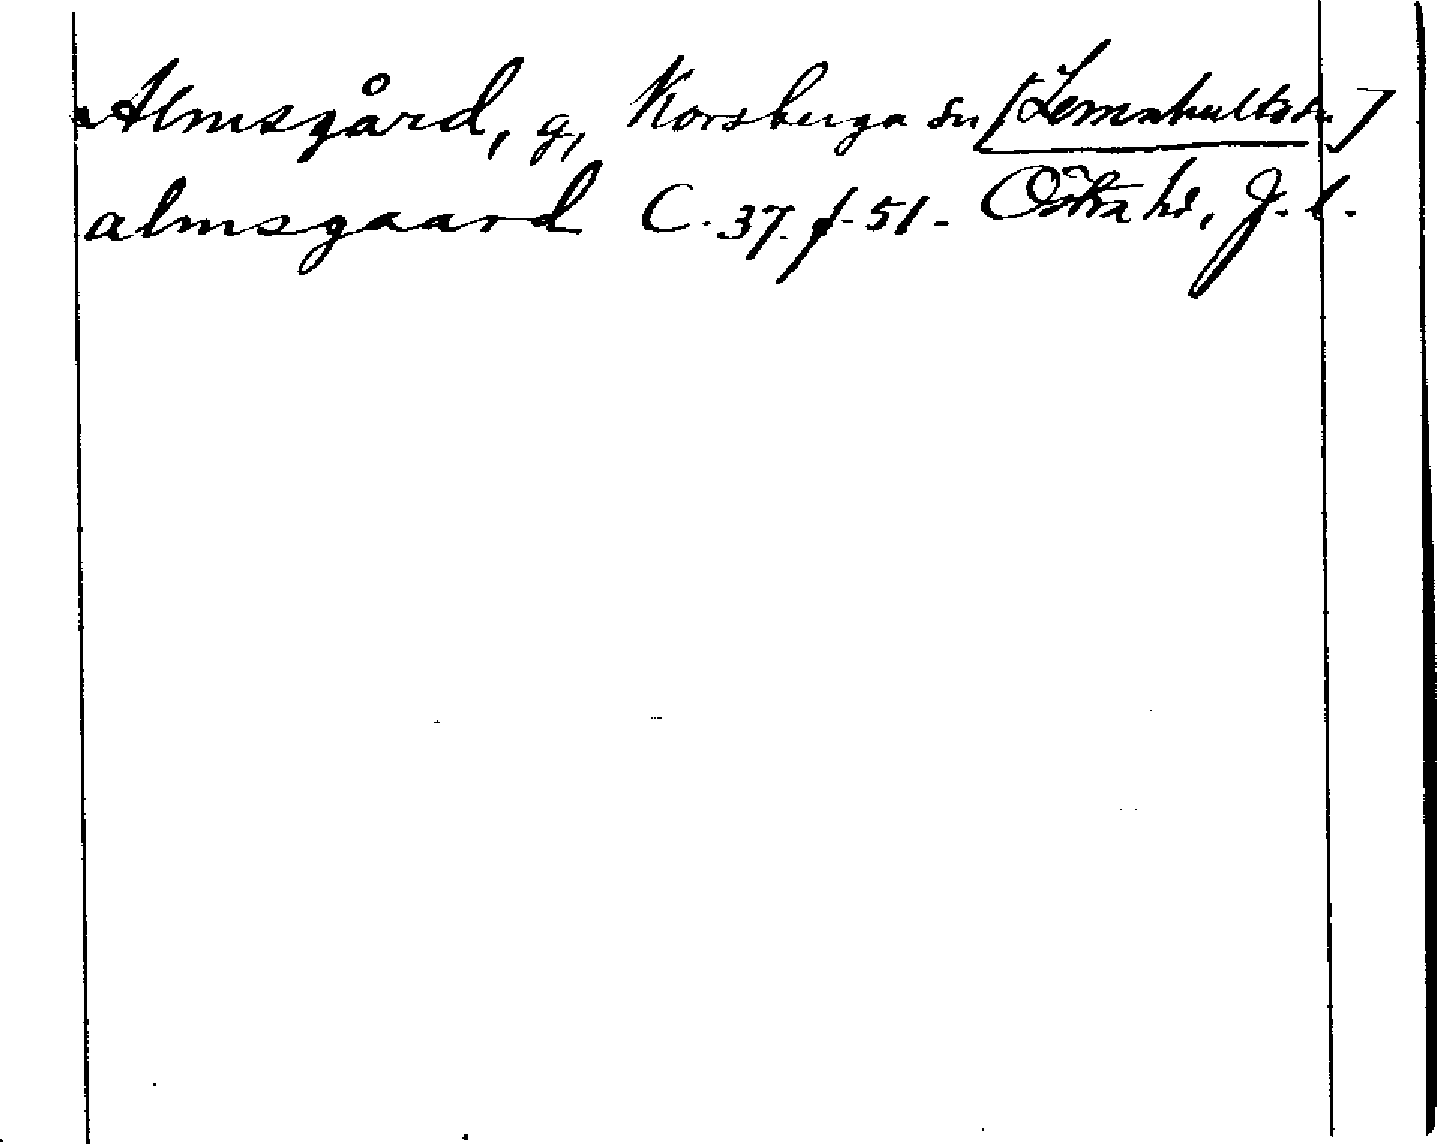 Almsgård, g, Korsberga sn [Lemnhults sn]
almsgaard C. 37. f. 51. Östra hd, J. l.